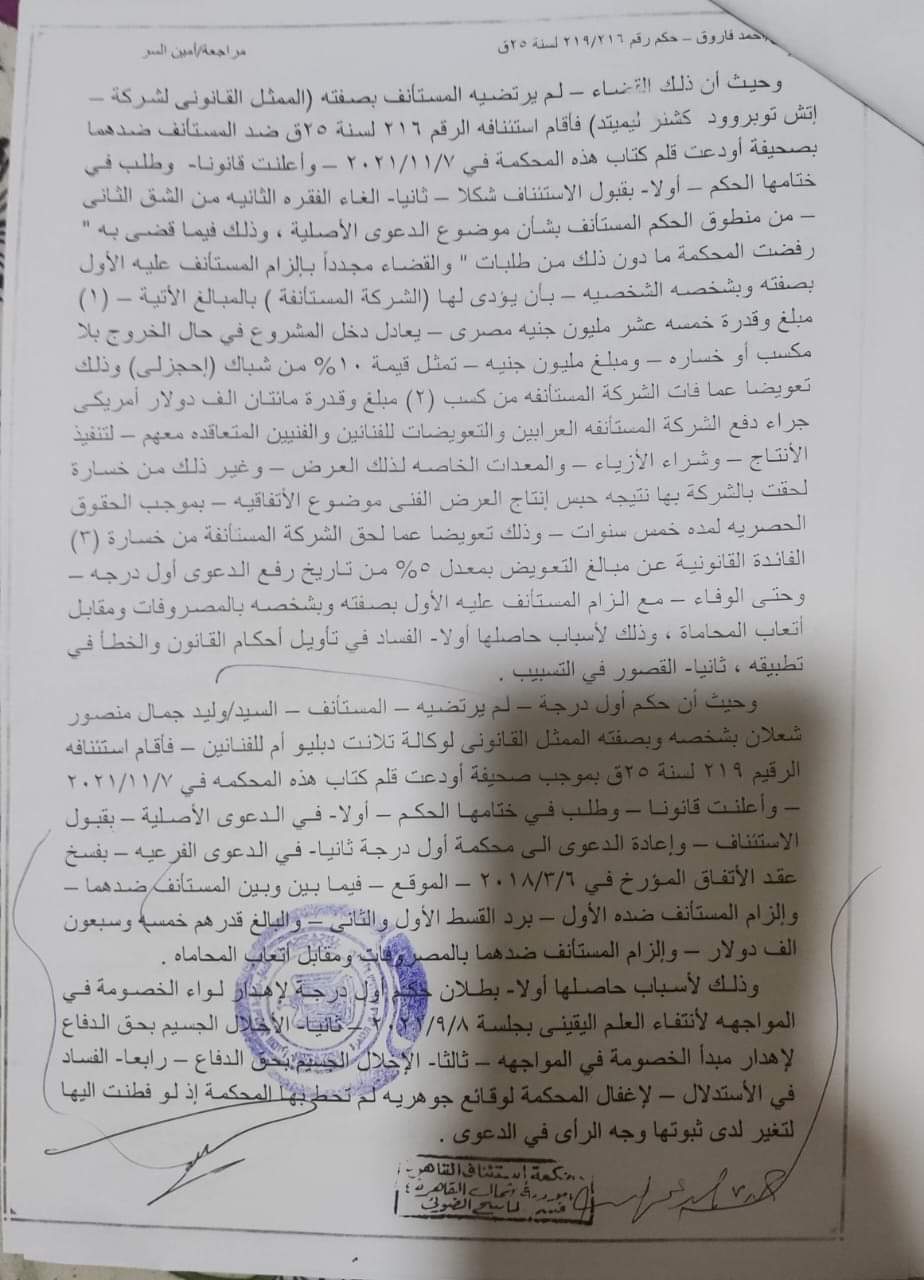 احمد فاروق – حكم رقم ٢١٩/٢١٦ لسنة ٢٥ق
مراجعة/أمين السر
وحيث أن ذلك القضاء – لم يرتضيه المستأنف بصفته (الممثل القانونى لشركة –
إتش توبروود كشنر ليميتد) فأقام استئنافه الرقم ٢١٦ لسنة ٢٥ق ضد المستأنف ضدهما
بصحيفة أودعت قلم كتاب هذه المحكمة في ٢٠٢١/١١/٧ – وأعلنت قانونا- وطلب في
ختامها الحكم – أولا- بقبول الاستئناف شكلا – ثانيا- الغاء الفقره الثانيه من الشق الثانى
– من منطوق الحكم المستأنف بشأن موضوع الدعوى الأصلية ، وذلك فيما قضى به "
رفضت المحكمة ما دون ذلك من طلبات " والقضاء مجدداً بإلزام المستأنف عليه الأول
بصفته وبشخصه الشخصيه – بأن يؤدى لها (الشركة المستأنفة ) بالمبالغ الأتية – (١)
مبلغ وقدرة خمسه عشر مليون جنيه مصرى – يعادل دخل المشروع في حال الخروج بلا
مكسب أو خساره – ومبلغ مليون جنيه – تمثل قيمة ١٠% من شباك (إحجزلى) وذلك
تعويضا عما فات الشركة المستأنفه من كسب (٢) مبلغ وقدرة مائتان الف دولار أمريكى
جراء دفع الشركة المستأنفه العرابين والتعويضات للفنانين والفنيين المتعاقده معهم – لتنفيذ
الأنتاج – وشراء الأزياء – والمعدات الخاصه لذلك العرض – وغير ذلك من خسارة
لحقت بالشركة بها نتيجه حبس إنتاج العرض الفنى موضوع الأتفاقيه – بموجب الحقوق
الحصريه لمده خمس سنوات – وذلك تعويضا عما لحق الشركة المستأنفة من خسارة (٣)
الفائدة القانونية عن مبالغ التعويض بمعدل ٥% من تاريخ رفع الدعوى أول درجه –
وحتى الوفاء – مع الزام المستأنف عليه الأول بصفته وبشخصه بالمصروفات ومقابل
أتعاب المحاماة ، وذلك لأسباب حاصلها أولا- الفساد في تأويل أحكام القانون والخطأ في
تطبيقه ، ثانيا- القصور في التسبيب .
وحيث أن حكم أول درجة – لم يرتضيه – المستأنف – السيد/وليد جمال منصور
شعلان بشخصه وبصفته الممثل القانونى لوكالة تلانت دبليو أم للفنانين – فأقام استئنافه
الرقيم ٢١٩ لسنة ٢٥ق بموجب صحيفة أودعت قلم كتاب هذه المحكمه في ٢٠٢١/١١/٧
– وأعلنت قانونا – وطلب في ختامها الحكم – أولا- في الدعوى الأصلية – بقبول
الاستئناف – وإعادة الدعوى الى محكمة أول درجة ثانيا- في الدعوى الفرعيه – بفسخ
عقد الأتفاق المؤرخ في ٢٠١٨/٣/٦ – الموقع – فيما بين وبين المستأنف ضدهما –
وإلزام المستأنف ضده الأول – برد القسط الأول والثانى – والبالغ قدرهم خمسه وسبعون
الف دولار – وإلزام المستأنف ضدهما بالمصروفات ومقابل أتعاب المحاماه .
وذلك لأسباب حاصلها أولا- بطلان حكم أول درجة لإهدار لواء الخصومة في
المواجهه لأنتفاء العلم اليقينى بجلسة ٢٠٢١/٩/٨ – ثانيا- الأخلال الجسيم بحق الدفاع
لإهدار مبدأ الخصومة في المواجهه – ثالثا- الإخلال الجسيم بحق الدفاع – رابعا- الفساد
في الأستدلال – لإغفال المحكمة لوقائع جوهريه لم تحط بها المحكمة إذ لو فطنت اليها
لتغير لدى ثبوتها وجه الرأى في الدعوى .
محكمة إستئناف القاهرة
مأمورية شمال القاهرة
قسم الناسخ الضوئى